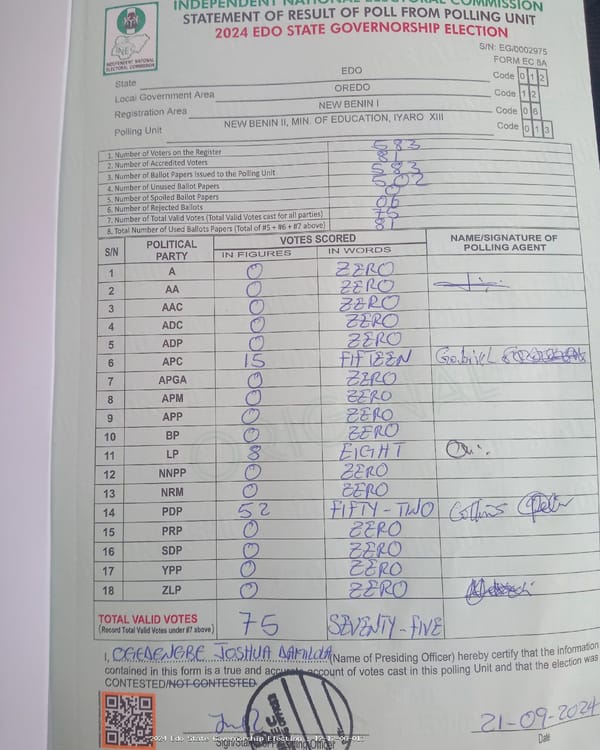 INDEPENDENT NATIONAL ELECTORAL COMMISSION
STATEMENT OF RESULT OF POLL FROM POLLING UNIT
2024 EDO STATE GOVERNORSHIP ELECTION
INEC
INDEPENDENT NATIONAL ELECTORAL COMMISSION
S/N: EG/0002975
FORM EC 8A
State EDO Code 0 1 2
Local Government Area OREDO Code 1 2
Registration Area NEW BENIN I Code 0 6
Polling Unit NEW BENIN II, MIN. OF EDUCATION, IYARO XIII Code 0 1 3
1. Number of Voters on the Register 583
2. Number of Accredited Voters 81
3. Number of Ballot Papers Issued to the Polling Unit 583
4. Number of Unused Ballot Papers 502
5. Number of Spoiled Ballot Papers 0
6. Number of Rejected Ballots 06
7. Number of Total Valid Votes (Total Valid Votes cast for all parties) 75
8. Total Number of Used Ballots Papers (Total of #5 + #6 + #7 above) 81
S/N POLITICAL PARTY VOTES SCORED NAME/SIGNATURE OF POLLING AGENT
IN FIGURES IN WORDS
1 A 0 ZERO
2 AA 0 ZERO
3 AAC 0 ZERO
4 ADC 0 ZERO
5 ADP 0 ZERO
6 APC 15 FIFTEEN Gabriel
7 APGA 0 ZERO
8 APM 0 ZERO
9 APP 0 ZERO
10 BP 0 ZERO
11 LP 8 EIGHT
12 NNPP 0 ZERO
13 NRM 0 ZERO
14 PDP 52 FIFTY-TWO Collins
15 PRP 0 ZERO
16 SDP 0 ZERO
17 YPP 0 ZERO
18 ZLP 0 ZERO
ORIGINAL
TOTAL VALID VOTES 75 SEVENTY-FIVE
(Record Total Valid Votes under #7 above)
I, OGEDENGBE JOSHUA DAMILOLA (Name of Presiding Officer) hereby certify that the information
contained in this form is a true and accurate account of votes cast in this polling Unit and that the election was
CONTESTED/NOT CONTESTED
21-09-2024
Date